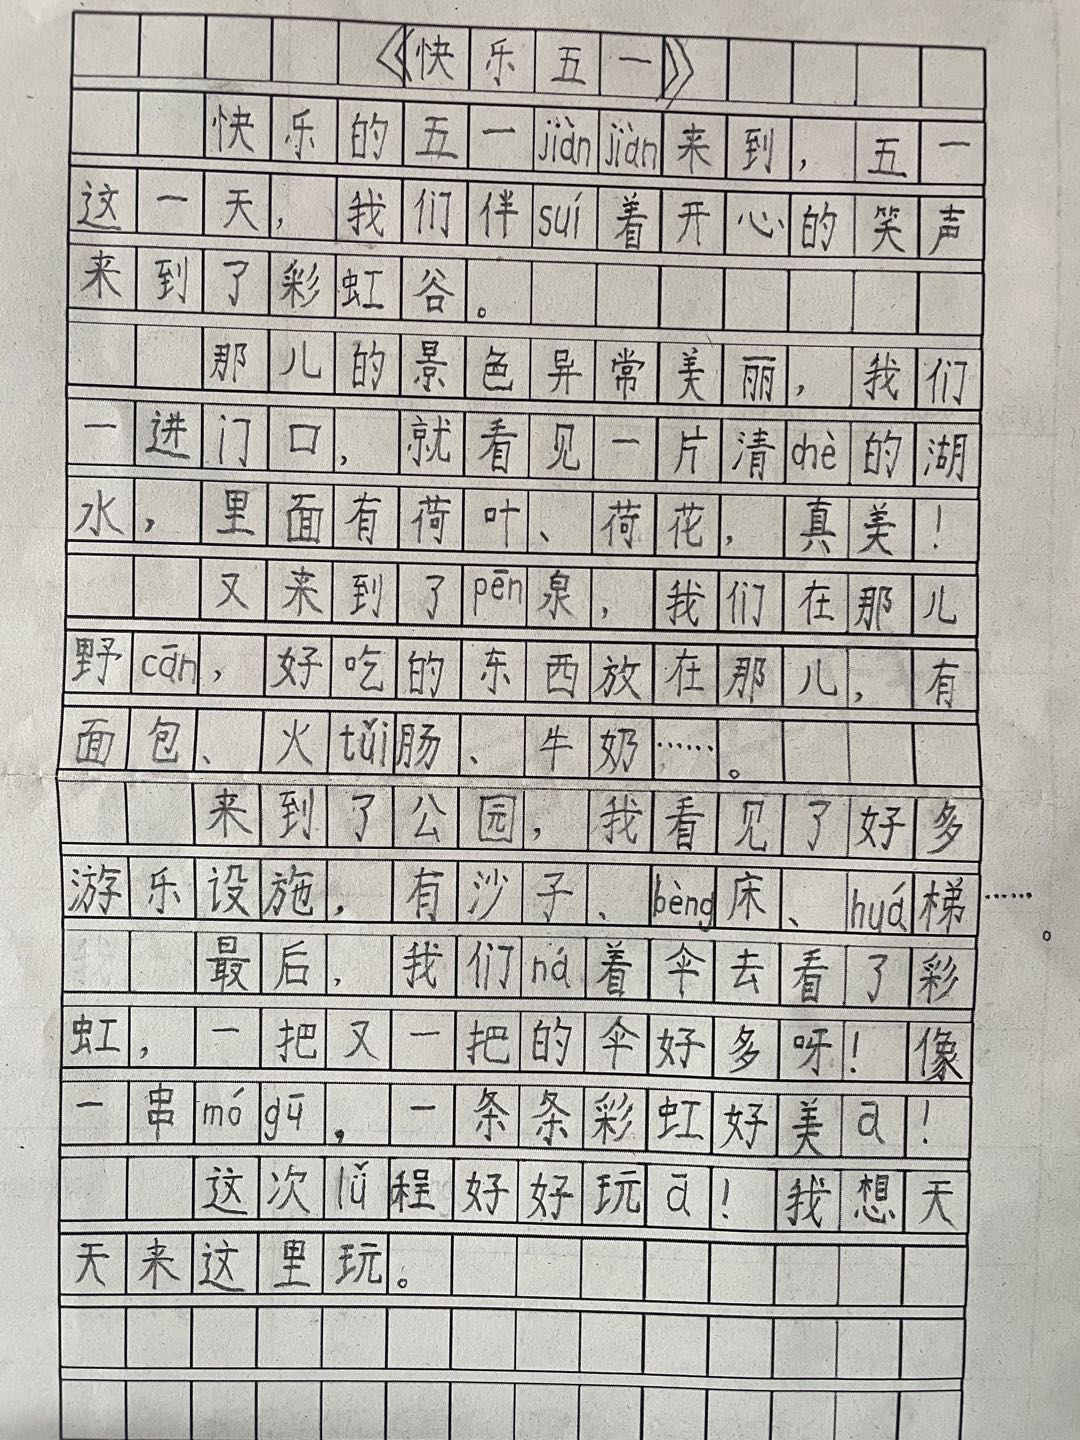 《快乐五一》
快乐的五一jiànjiàn来到，五一
这一天，我们伴suí着开心的笑声
来到了彩虹谷。
那儿的景色异常美丽，我们
一进门口，就看见一片清chè的湖
水，里面有荷叶、荷花，真美！
又来到了pēn泉，我们在那儿
野cān，好吃的东西放在那儿，有
面包、火tuǐ肠、牛奶……。
来到了公园，我看见了好多
游乐设施，有沙子、bèng床、huá梯……。
最后，我们ná着伞去看了彩
虹，一把又一把的伞好多呀！像
一串mógū，一条条彩虹好美ā！
这次lǚ程好好玩ā！我想天
天来这里玩。